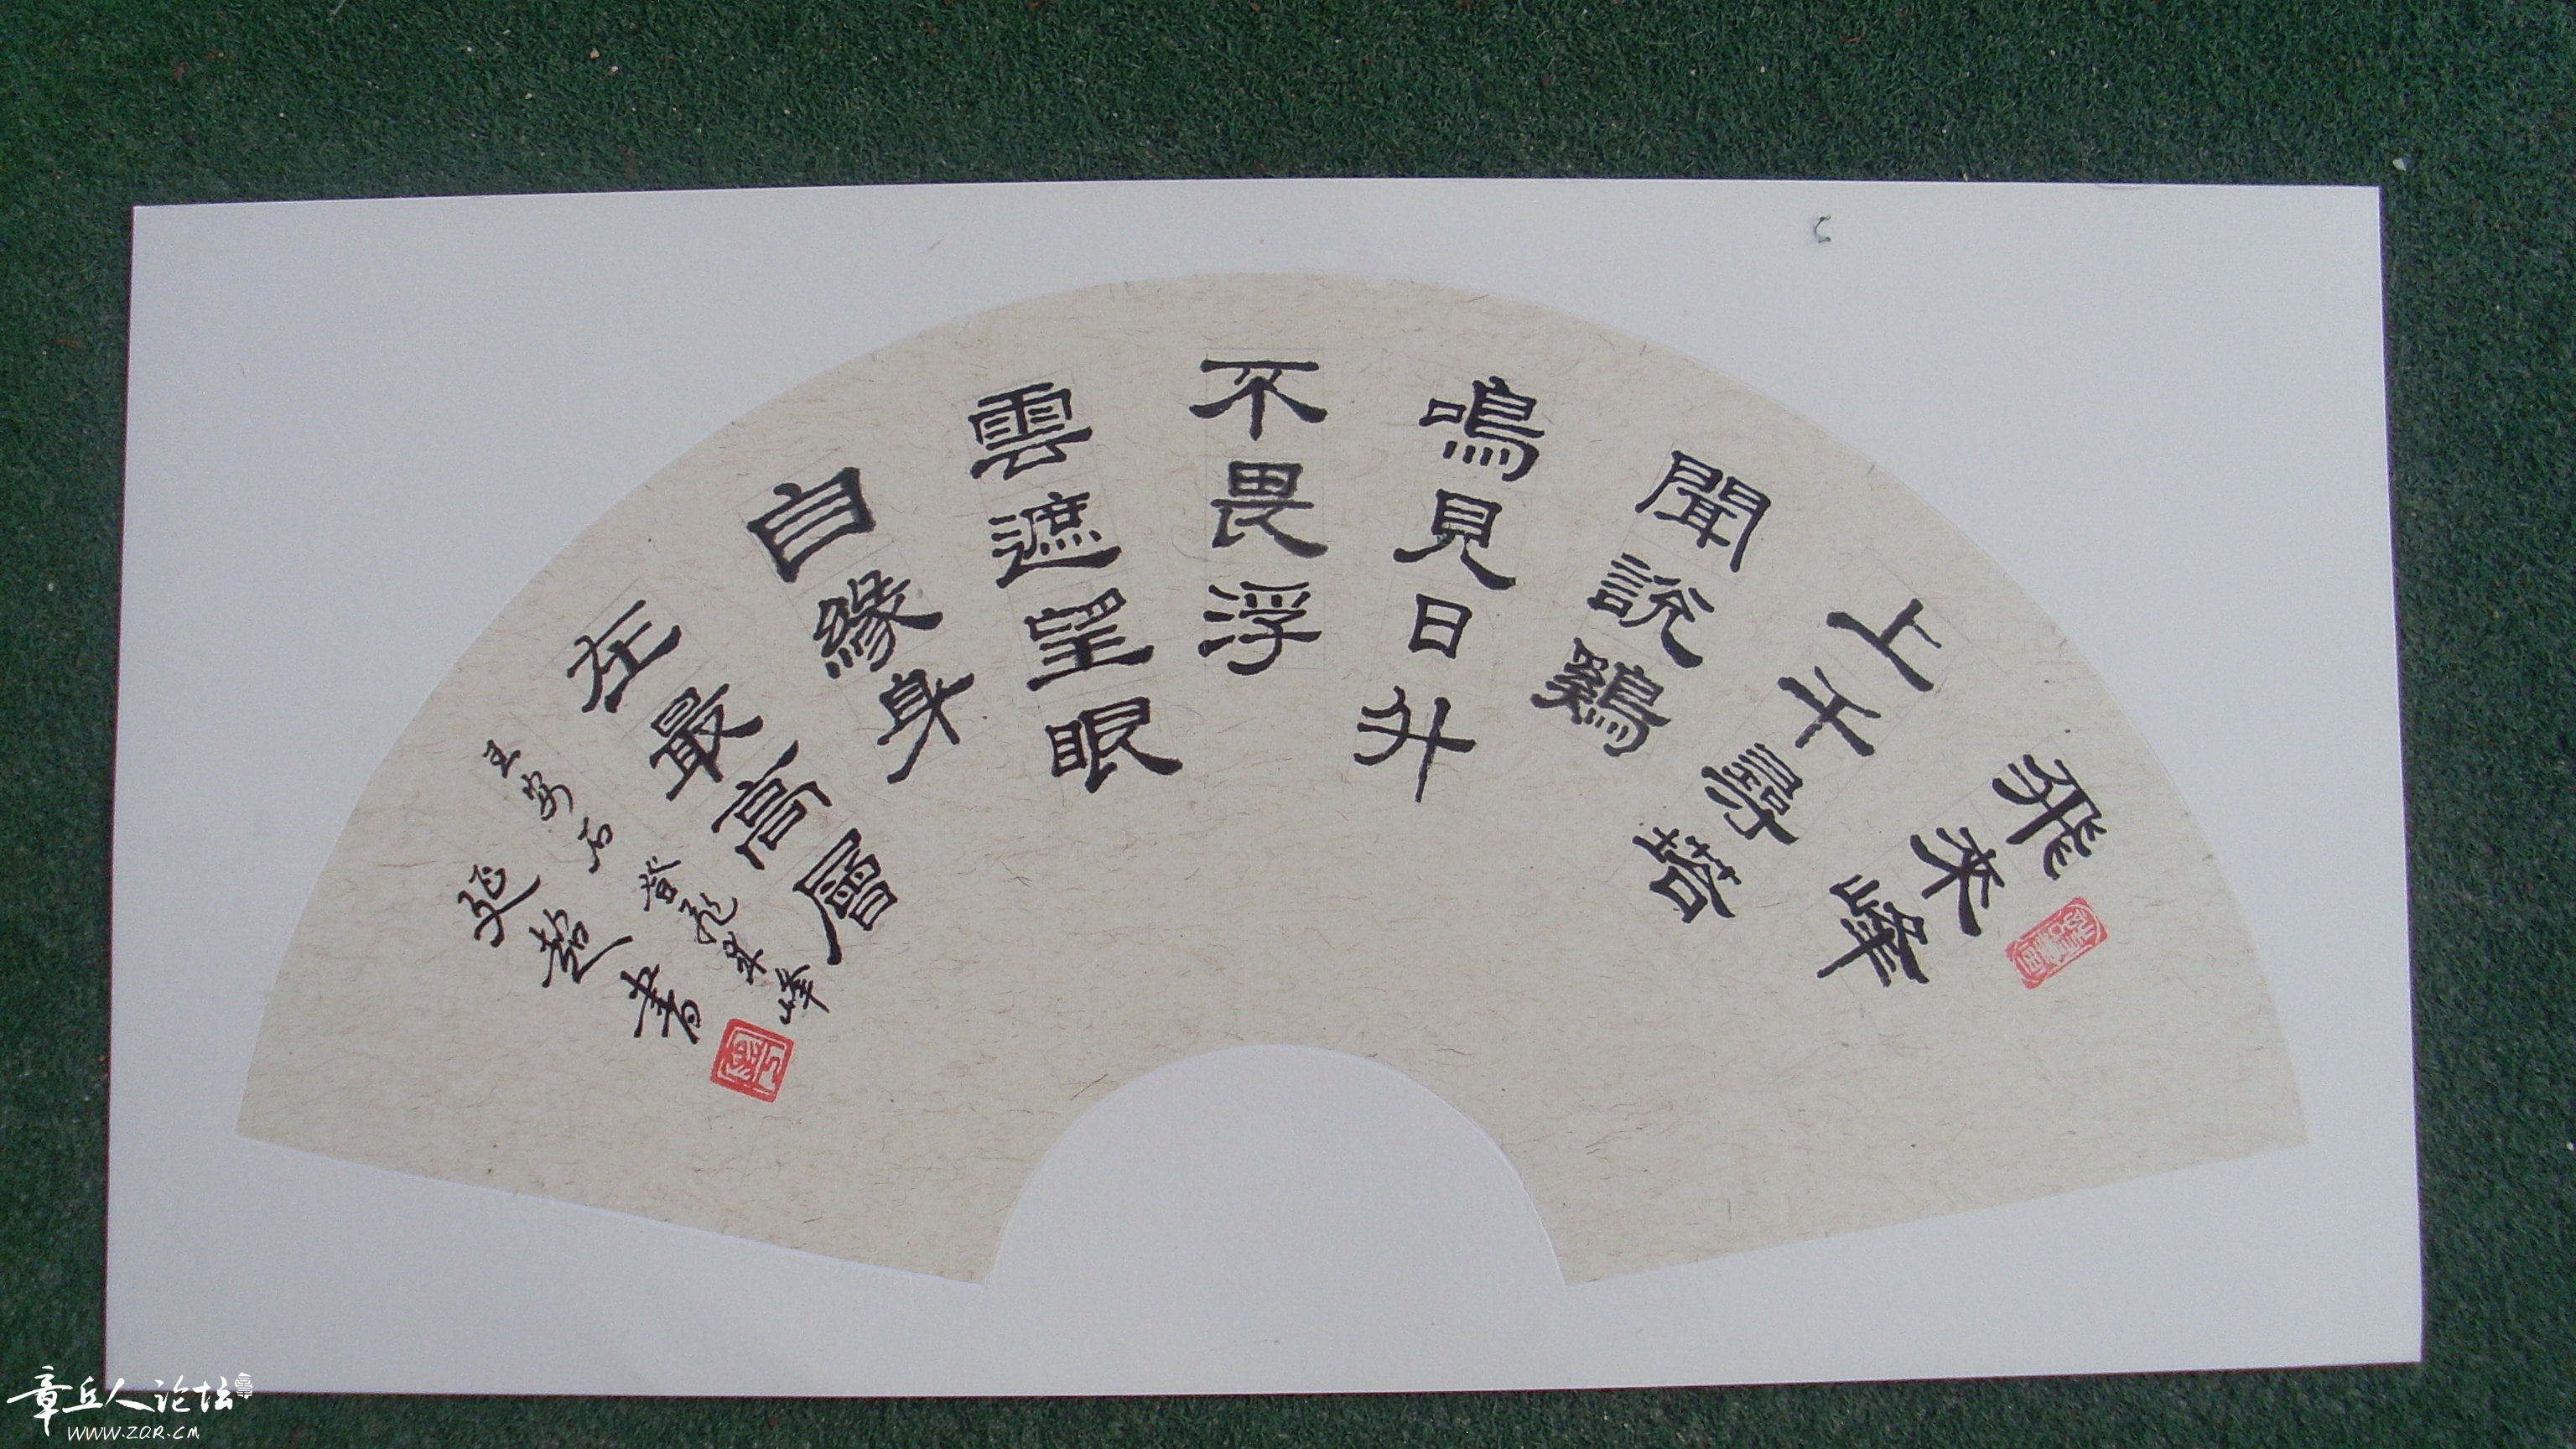 飛來峰
上千尋塔
聞説鷄
鳴見日升
不畏浮
雲遮望眼
自緣身
在最高層
王安石登飛來峰
延哲書
章丘人论坛
WWW.ZQR.CM